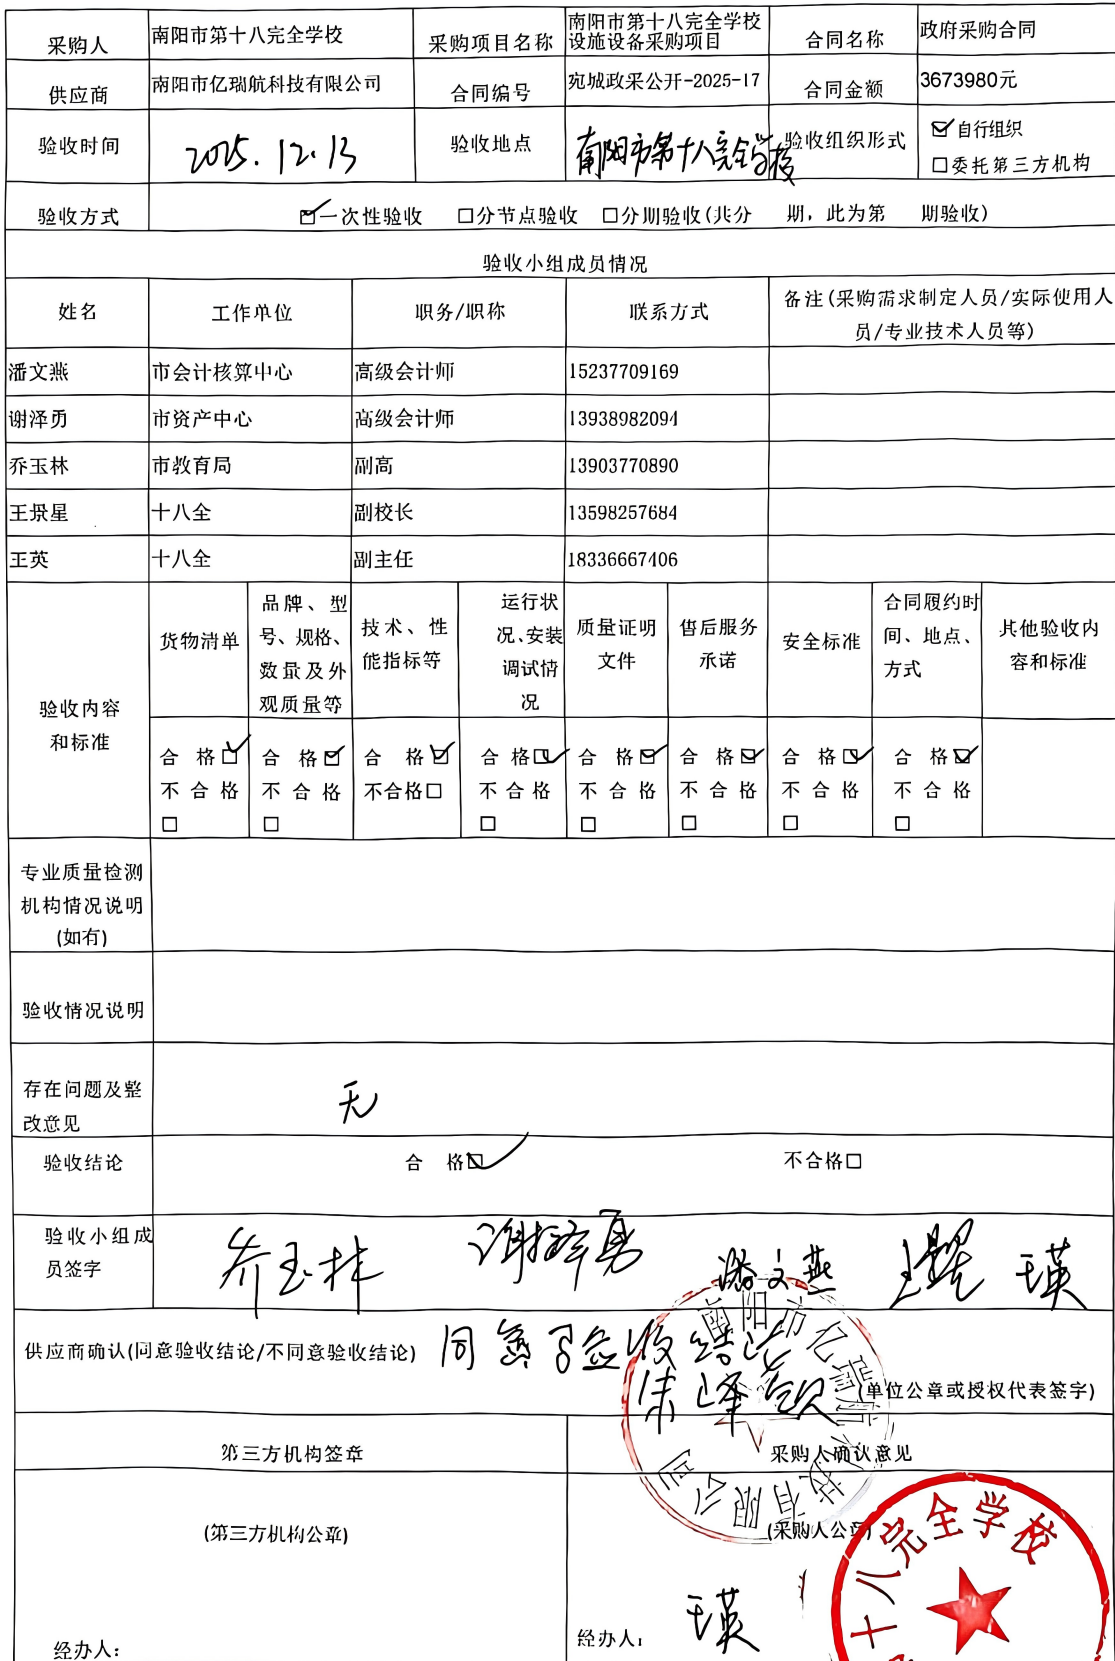 采购人 南阳市第十八完全学校 采购项目名称 南阳市第十八完全学校设施设备采购项目 合同名称 政府采购合同
供应商 南阳市亿瑞航科技有限公司 合同编号 宛城政采公开-2025-17 合同金额 3673980元
验收时间 2025.12.13 验收地点 南阳市第十八完全学校 验收组织形式 ☑自行组织
□委托第三方机构
验收方式 ☑一次性验收 □分节点验收 □分期验收(共分 期，此为第 期验收)
验收小组成员情况
姓名 工作单位 职务/职称 联系方式 备注(采购需求制定人员/实际使用人员/专业技术人员等)
潘文燕 市会计核算中心 高级会计师 15237709169
谢泽勇 市资产中心 高级会计师 13938982094
乔玉林 市教育局 副高 13903770890
王景星 十八全 副校长 13598257684
王英 十八全 副主任 18336667406
验收内容和标准 货物清单 品牌、型号、规格、数量及外观质量等 技术、性能指标等 运行状况、安装调试情况 质量证明文件 售后服务承诺 安全标准 合同履约时间、地点、方式 其他验收内容和标准
合格☑ 合格☑ 合格☑ 合格☑ 合格☑ 合格☑ 合格☑ 合格☑
不合格□ 不合格□ 不合格□ 不合格□ 不合格□ 不合格□ 不合格□ 不合格□
专业质量检测机构情况说明(如有)
验收情况说明
存在问题及整改意见 无
验收结论 合 格☑ 不合格□
验收小组成员签字 乔玉林 谢泽勇 潘文燕 王英
供应商确认(同意验收结论/不同意验收结论) 同意 验收结论
(单位公章或授权代表签字)
南阳市亿瑞航科技有限公司
第三方机构签章 采购人确认意见
(第三方机构公章) (采购人公章)
十八完全学校
经办人： 经办人： 王英